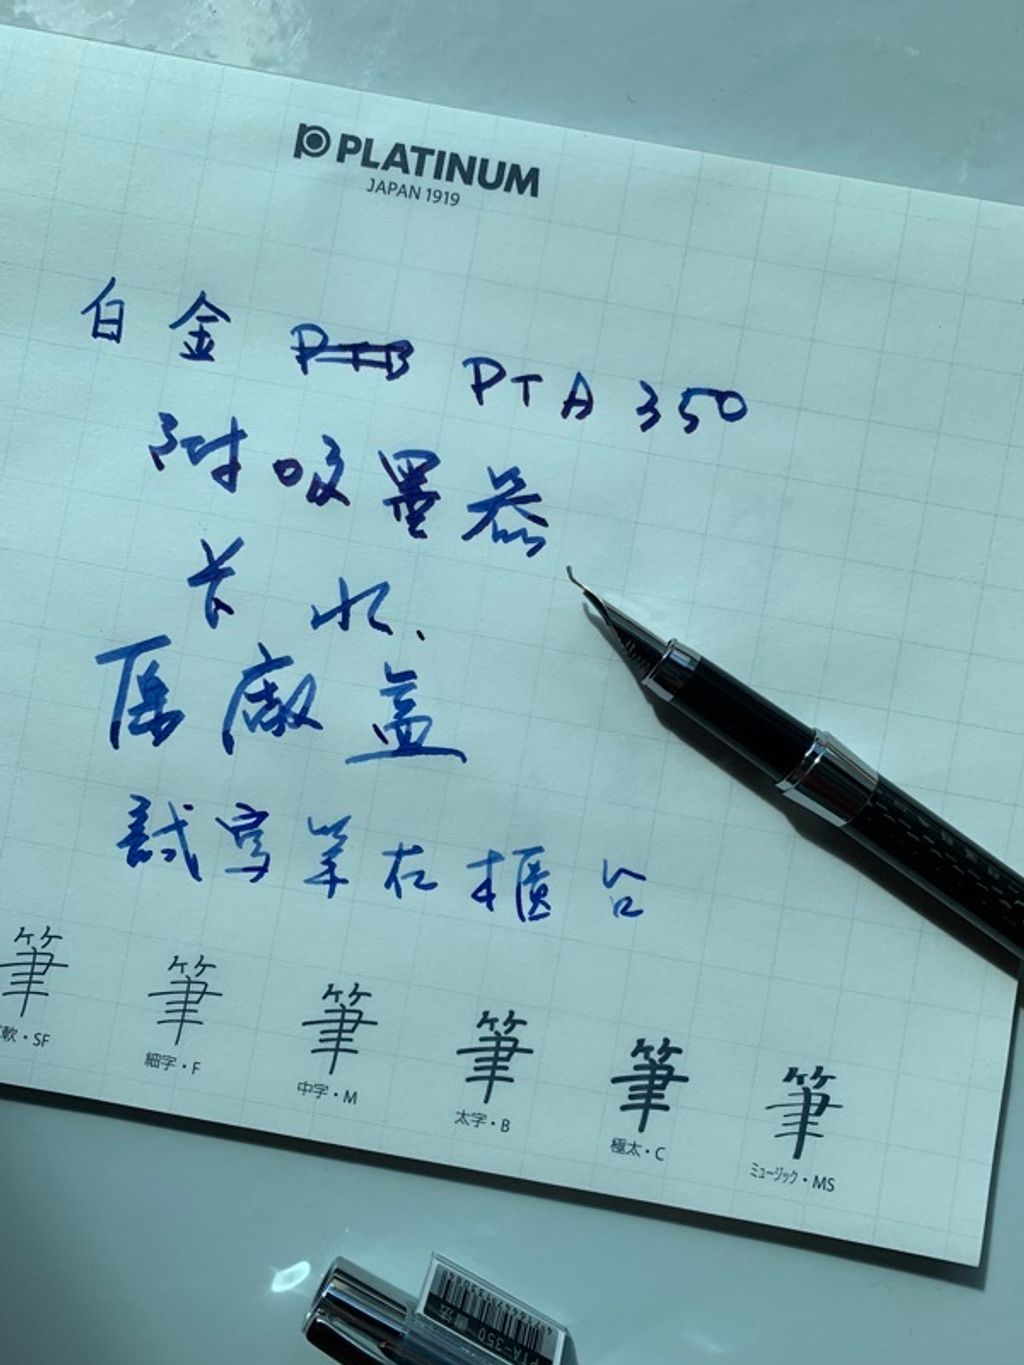 PLATINUM
JAPAN 1919
白金 PTB PTA 350
附吸墨器
卡水.
原廠蓋
試寫筆在櫃台
筆 筆 筆 筆 筆 筆
軟・SF 細字・F 中字・M 太字・B 極太・C ミュージック・MS
PTA-350